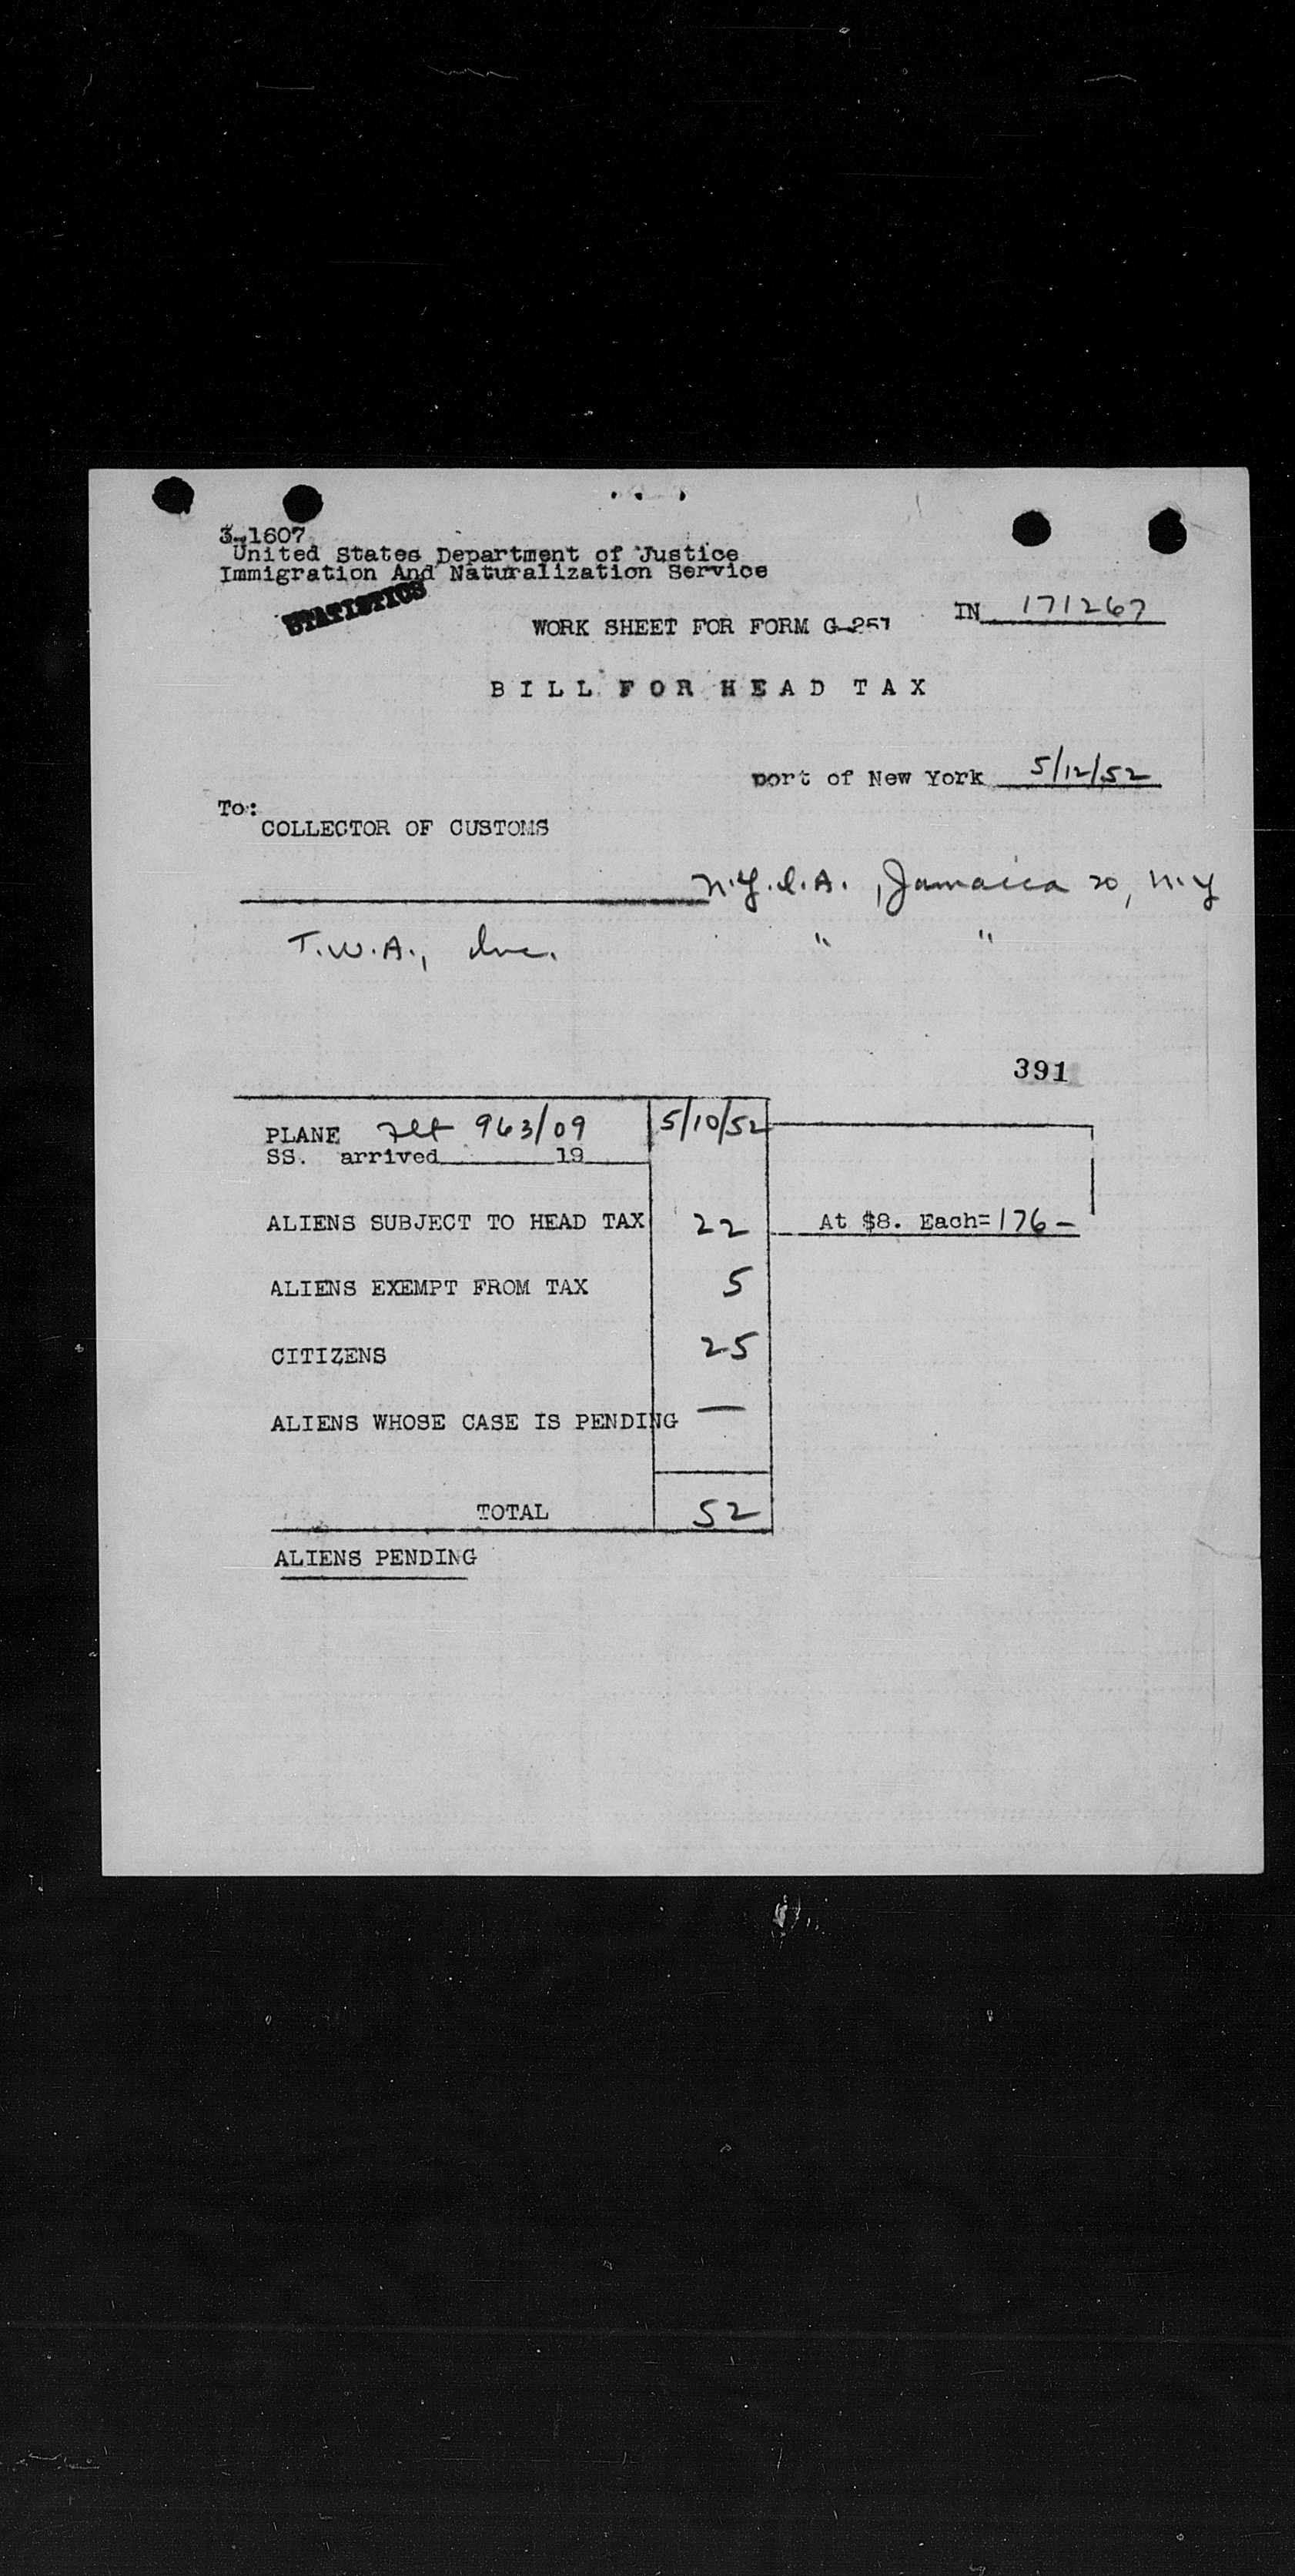 3-1607
United States Department of Justice
Immigration And Naturalization Service
STATISTICS
IN 171267
WORK SHEET FOR FORM G-257
BILL FOR HEAD TAX
port of New York 5/12/52
To:
COLLECTOR OF CUSTOMS
N.Y.I.A., Jamaica 20, N.Y
T.W.A., Inc. " "
391
PLANE Flt 963/09 5/10/52
SS. arrived 19
ALIENS SUBJECT TO HEAD TAX 22 At $8. Each= 176 –
ALIENS EXEMPT FROM TAX 5
CITIZENS 25
ALIENS WHOSE CASE IS PENDING —
TOTAL 52
ALIENS PENDING